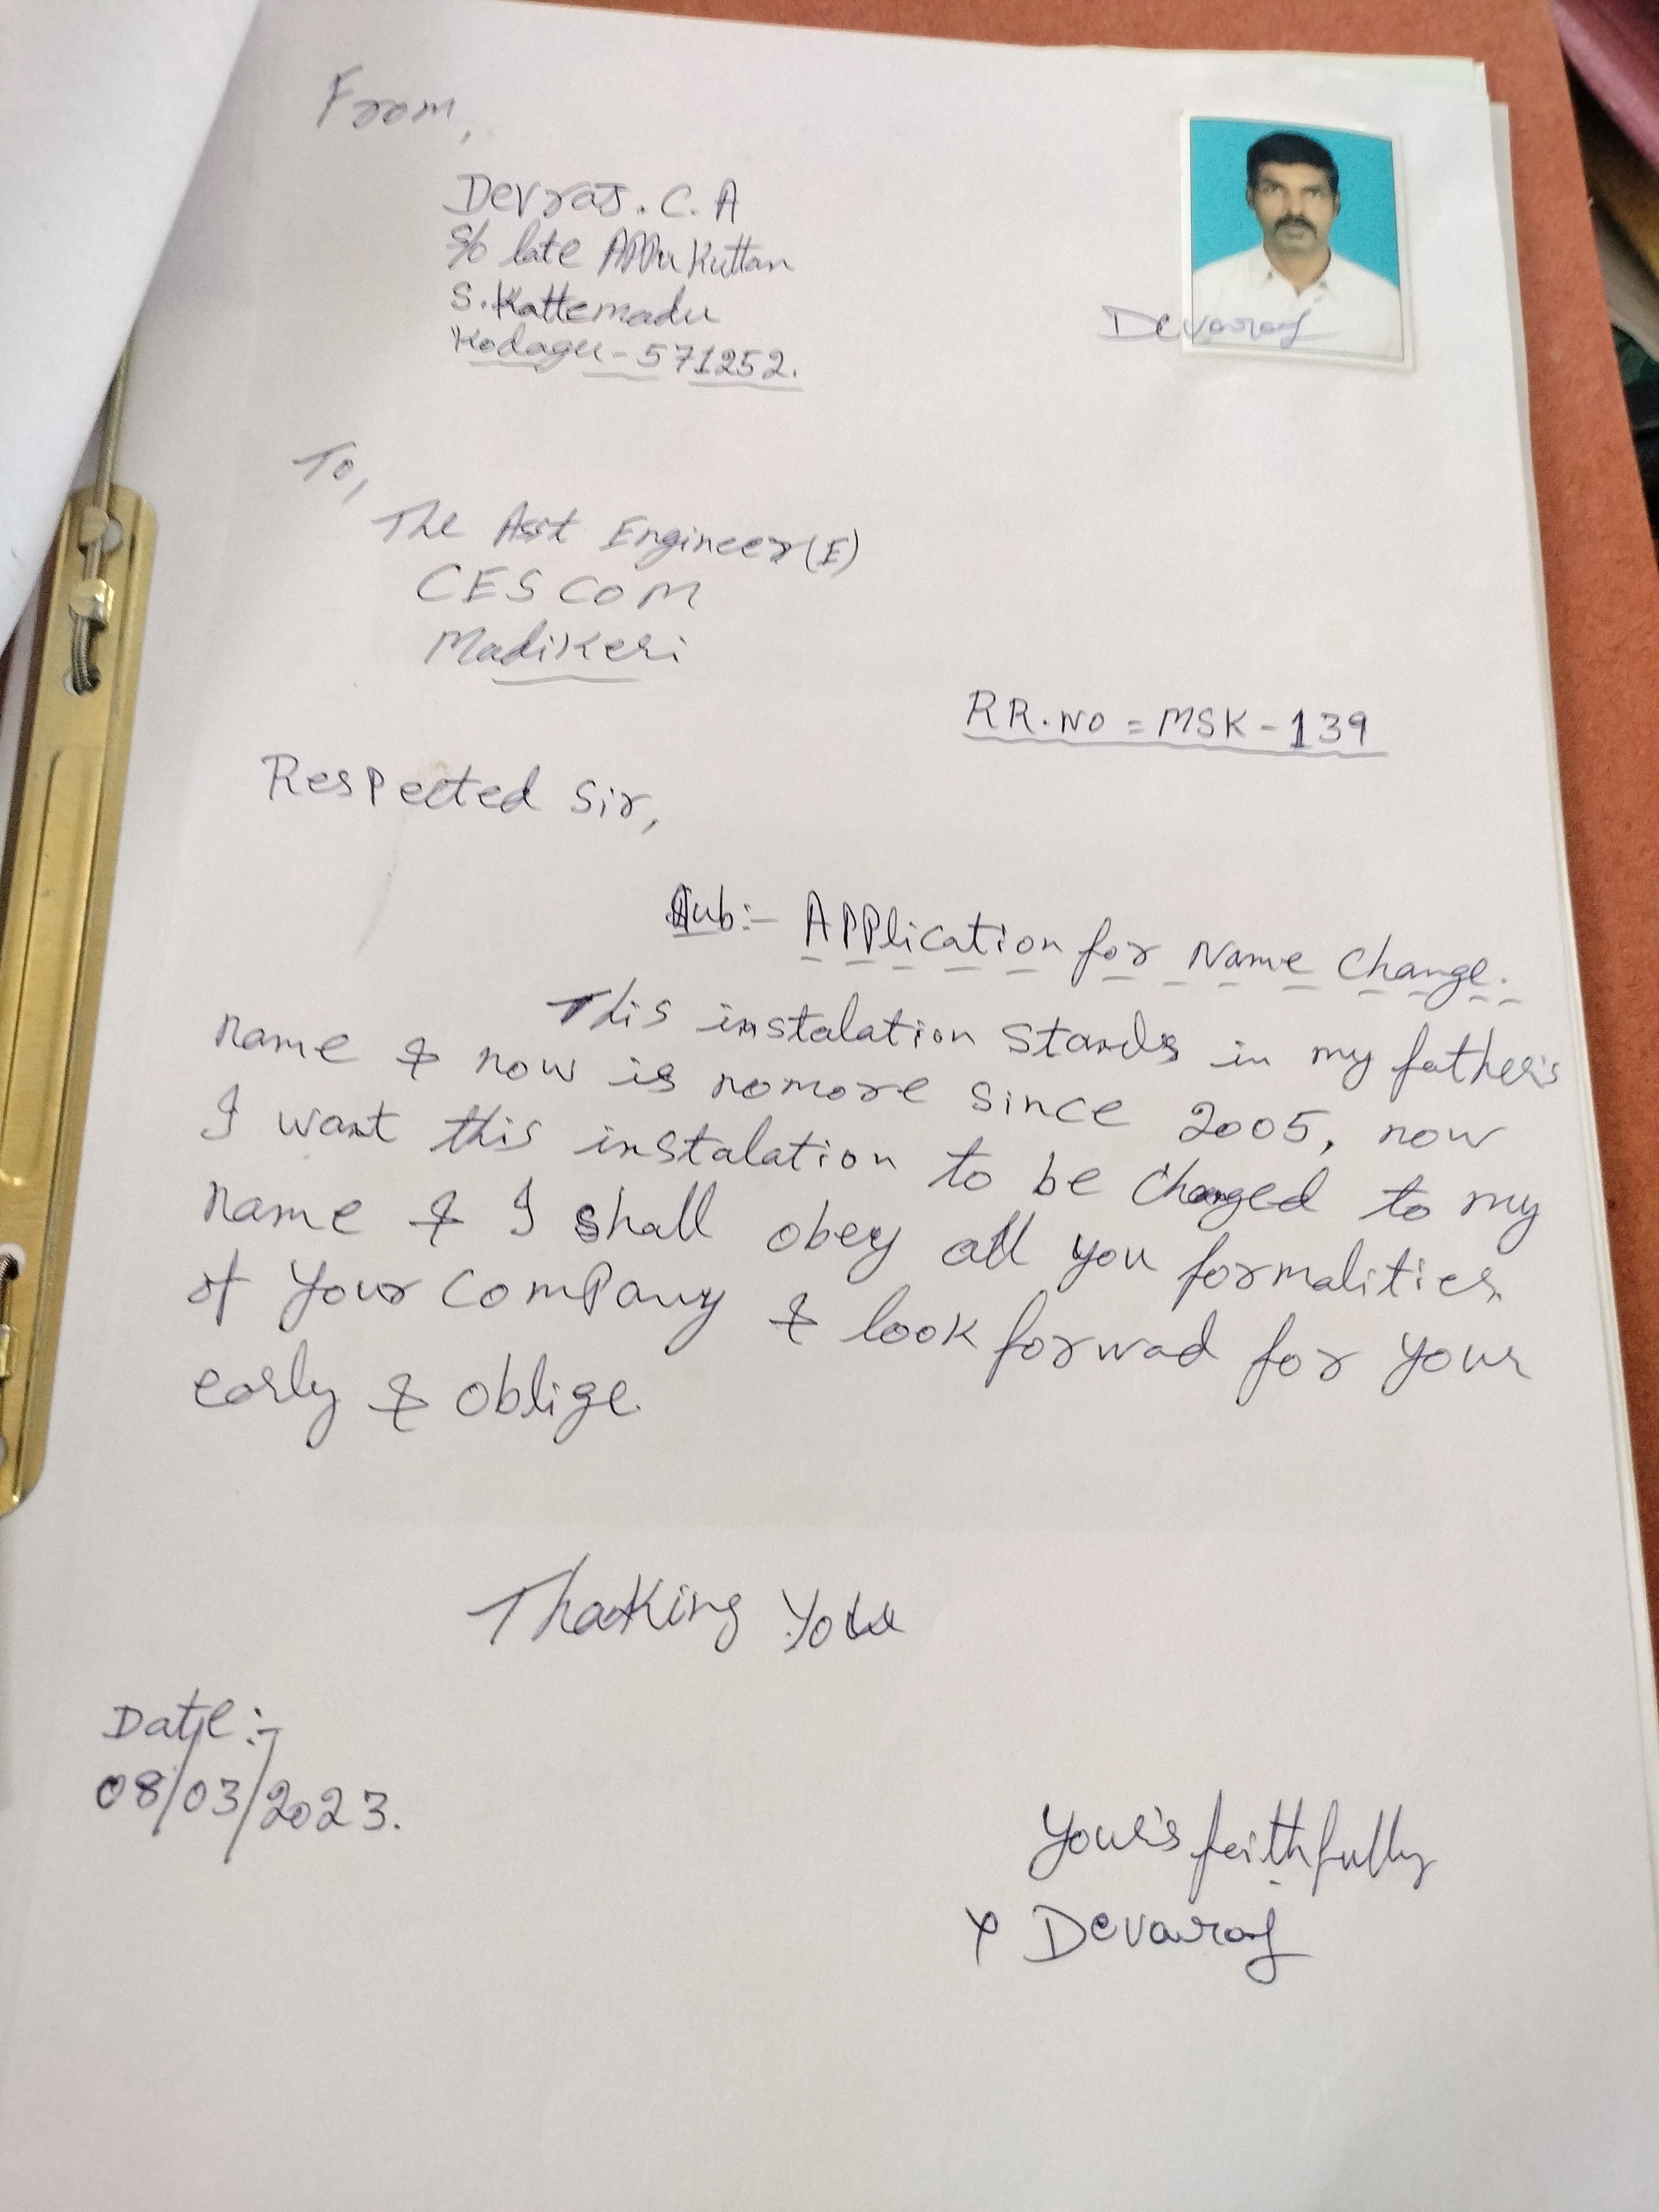 From,
Devraj. C. A
S/o late Appu Kuttan
S. Kattemadu
Kodagu - 571252.
Devaraj
To,
The Asst Engineer(E)
CESCOM
Madikeri
RR. NO = MSK - 139
Respected Sir,
Sub:- Application for Name Change.
This instalation stands in my father's
name & now is nomore since 2005, now
I want this instalation to be changed to my
name & I shall obey all you formalities
of your company & look forwad for your
early & oblige.
Thanking You
Date :-
08/03/2023.
Your's faithfully
x Devaraj